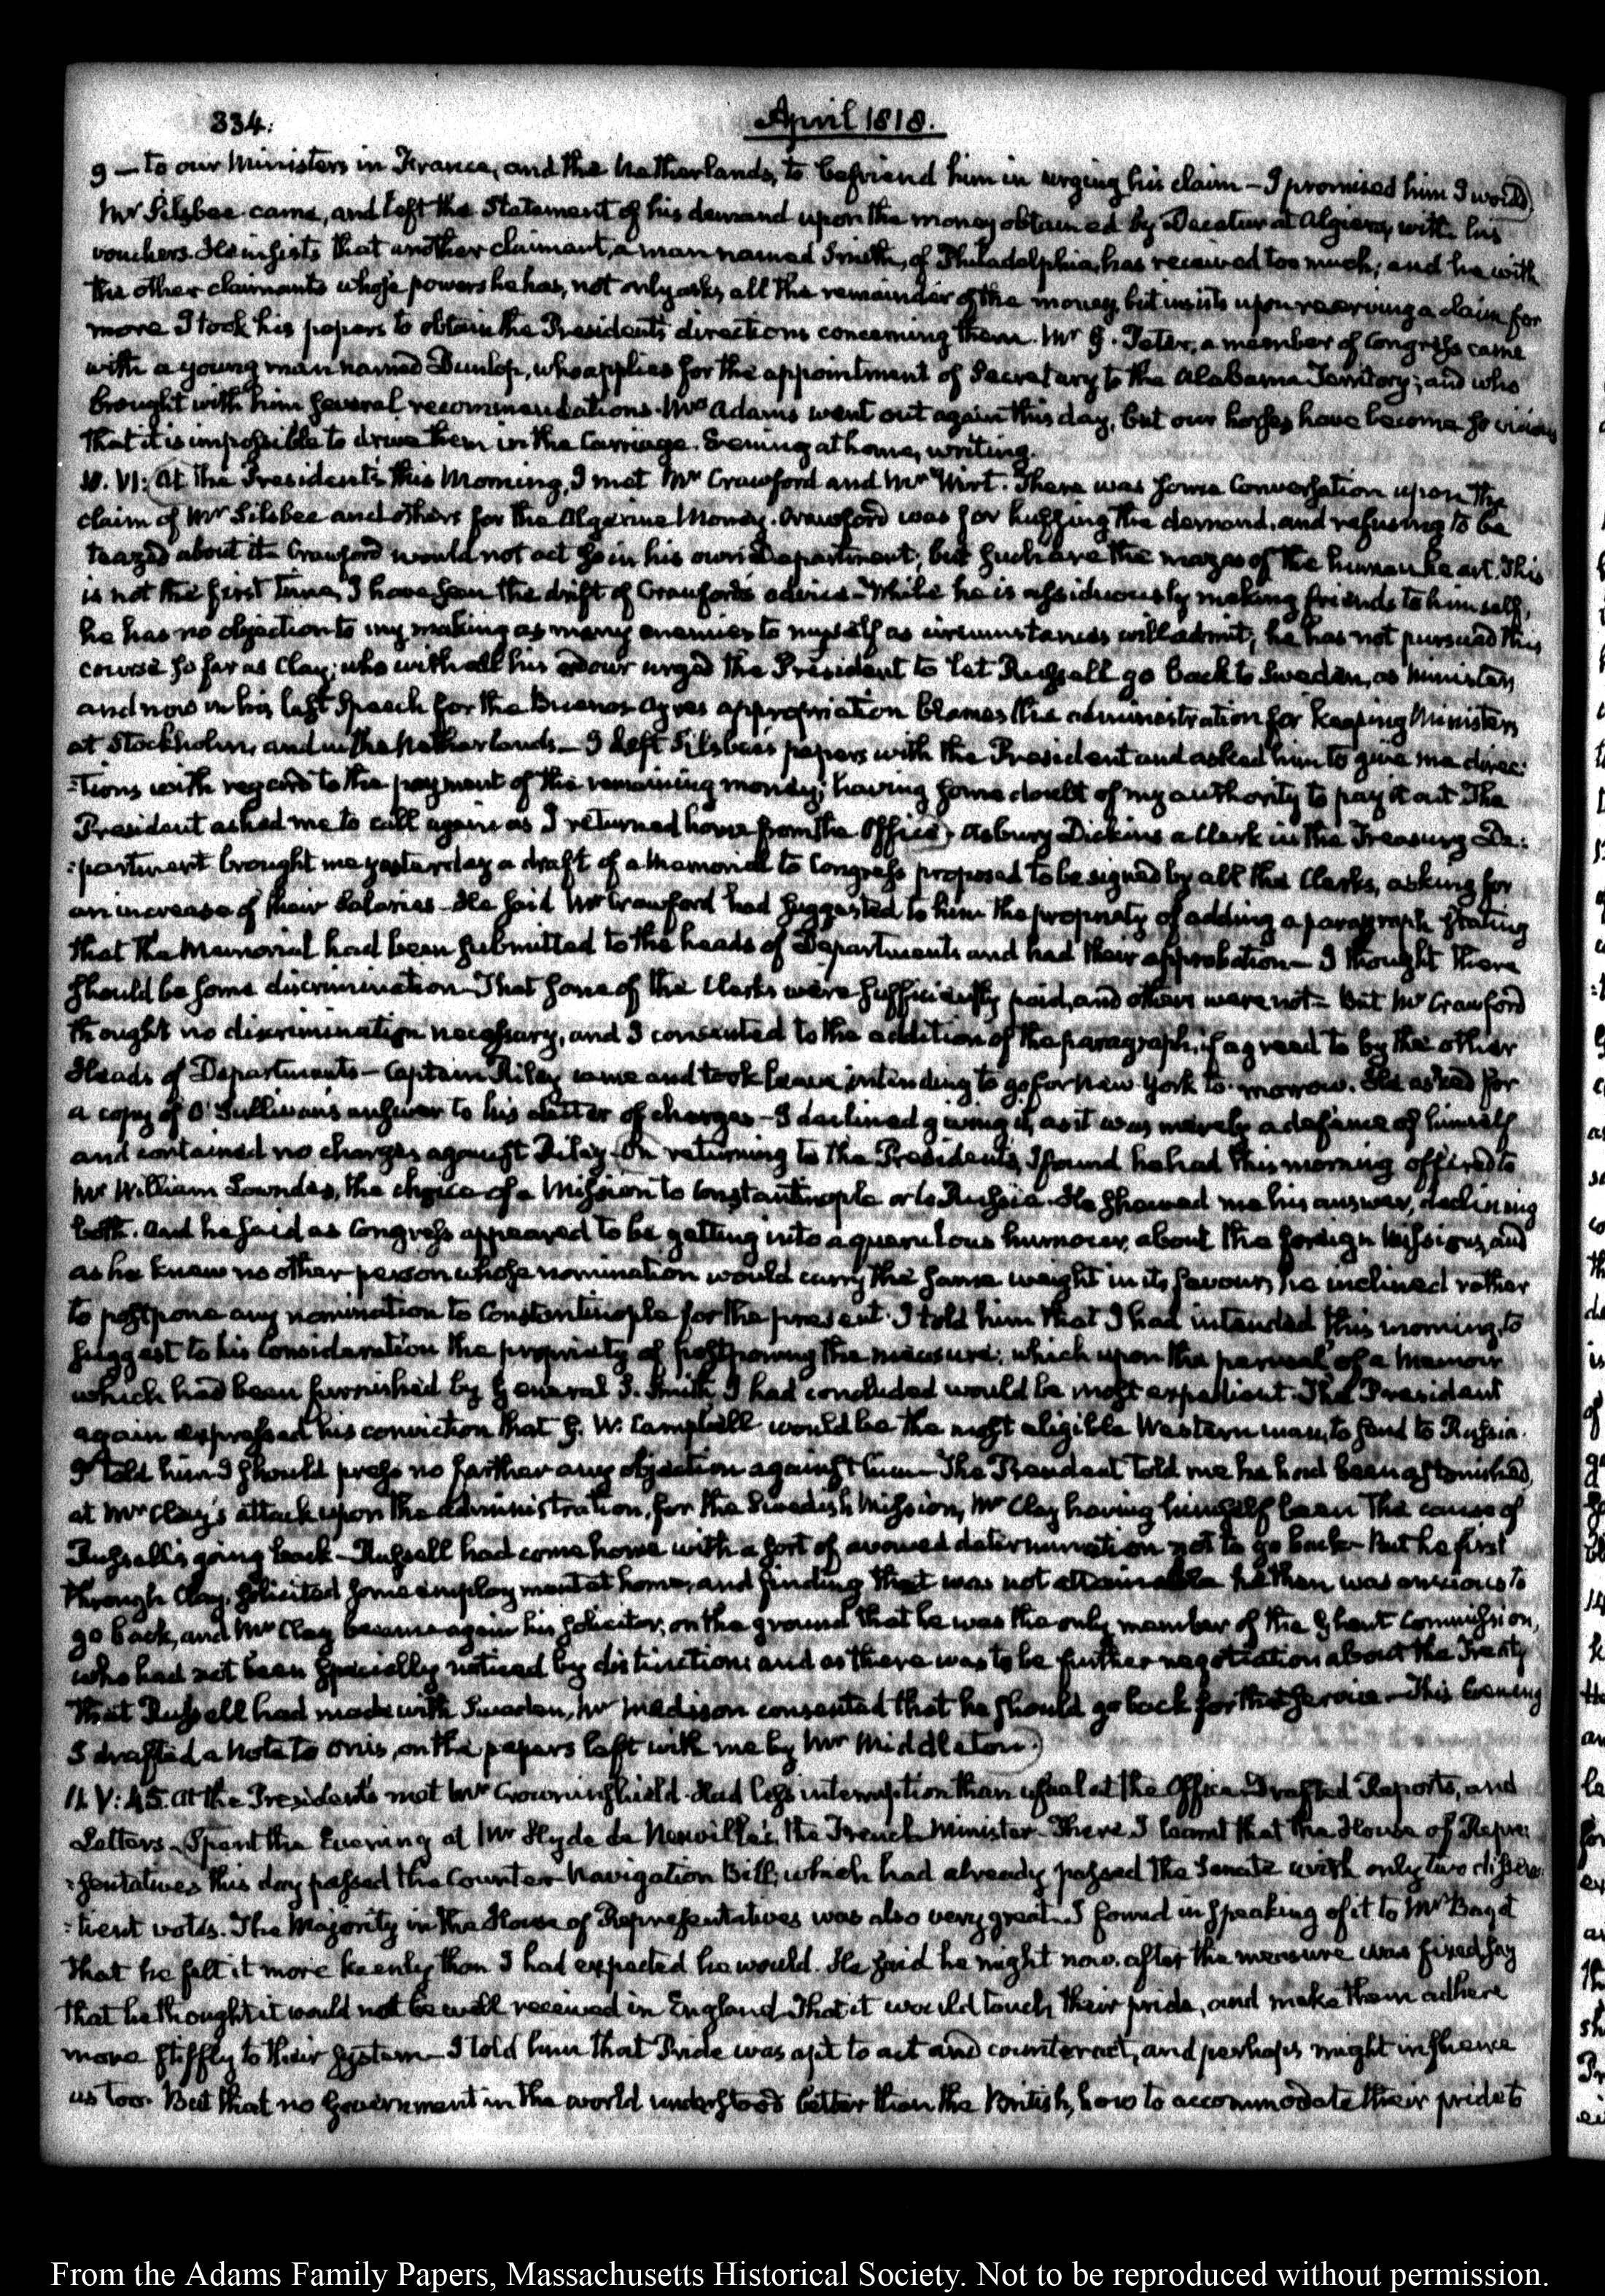 334.
April 1818.
9 — to our Ministers in France, and the Netherlands, to befriend him in urging his claim – I promised him I would.
Mr Silsbee came, and left the Statement of his demand upon the money obtained by Decatur at Algiers, with his
vouchers. He insists that another claimant, a man named Smith, of Philadelphia, has received too much; and he with
the other claimants whose powers he has, not only asks all the remainder of the money, but insists upon reserving a claim for
more I took his papers to obtain the President's directions concerning them. Mr G. Peter, a member of Congress came
with a young man named Dunlop, who applies for the appointment of Secretary to the Alabama Territory; and who
brought with him several recommendations. Mrs Adams went out again this day, but our horses have become so vicious
that it is impossible to drive them in the Carriage. Evening at home, writing.
10. VI: At the President's this Morning, I met Mr Crawford and Mr Wirt. There was some Conversation upon the
claim of Mr Silsbee and others for the Algerine Money. Crawford was for huffing the demand, and refusing to be
teazed about it – Crawford would not act so in his own Department; but such are the mazes of the human heart. This
is not the first time, I have seen the drift of Crawford's advice – While he is assiduously making friends to himself,
he has no objection to my making as many enemies to myself as circumstances will admit; he has not pursued this
course so far as Clay; who with all his ardour urged the President to let Russell go back to Sweden, as Minister,
and now in his last Speech for the Buenos Ayres appropriation blames the administration for keeping Ministers
at Stockholm, and in the Netherlands – I left Silsbee's papers with the President and asked him to give me direc:
:tions with regard to the payment of the remaining money; having some doubt of my authority to pay it out. The
President asked me to call again as I returned home from the Office. Asbury Dickins a Clerk in the Treasury De:
:partment brought me yesterday a draft of a Memorial to Congress proposed to be signed by all the Clerks, asking for
an increase of their Salaries – He said Mr Crawford had suggested to him the propriety of adding a paragraph stating
that the Memorial had been submitted to the heads of Departments and had their approbation – I thought there
should be some discrimination – That some of the Clerks were sufficiently paid, and others were not – But Mr Crawford
thought no discrimination necessary, and I consented to the addition of the paragraph, if agreed to by the other
Heads of Departments – Captain Riley came and took leave intending to go for New York to-morrow. He asked for
a copy of O'Sullivan's answer to his letter of charges – I declined giving it, as it was merely a defence of himself
and contained no charges against Riley – On returning to the President's, I found he had this morning offered to
Mr William Lowndes, the choice of a Mission to Constantinople or to Russia. He shewed me his answer, declining
both. And he said as Congress appeared to be getting into a querulous humour, about the foreign Missions, and
as he knew no other person whose nomination would carry the same weight in its favour, he inclined rather
to postpone any nomination to Constantinople for the present. I told him that I had intended this morning, to
suggest to his Consideration the propriety of postponing the measure; which upon the perusal of a Memoir
which had been furnished by General S. Smith, I had concluded would be most expedient. The President
again expressed his conviction that G. W. Campbell would be the most eligible Western man, to send to Russia.
I told him I should press no farther any objection against him – The President told me he had been astonished,
at Mr Clay's attack upon the administration, for the Swedish Mission, Mr Clay having himself been the cause of
Russell's going back – Russell had come home with a sort of avowed determination not to go back – But he first
through Clay, solicited some employment at home, and finding that was not attainable he then was anxious to
go back, and Mr Clay became again his solicitor, on the ground that he was the only member of the Ghent Commission,
who had not been specially noticed by distinction; and as there was to be further negotiation about the Treaty
that Russell had made with Sweden, Mr Madison consented that he should go back for that service – This Evening
I drafted a Note to Onis, on the papers left with me by Mr Middleton.
11. V:45. At the President's met Mr Crowninshield. Had less interruption than usual at the Office – Drafted Reports, and
Letters – Spent the Evening at Mr Hyde de Neuville's, the French Minister – There I learnt that the House of Repre:
:sentatives this day passed the Counter-Navigation Bill; which had already passed the Senate with only two dissen:
:tient votes. The Majority in the House of Representatives was also very great – I found in speaking of it to Mr Bagot
that he felt it more keenly than I had expected he would. He said he might now, after the measure was fixed, say
that he thought it would not be well received in England – That it would touch their pride, and make them adhere
more stiffly to their system – I told him that Pride was apt to act and counteract, and perhaps might influence
us too. But that no Government in the world understood better than the British, how to accommodate their pride to
From the Adams Family Papers, Massachusetts Historical Society. Not to be reproduced without permission.